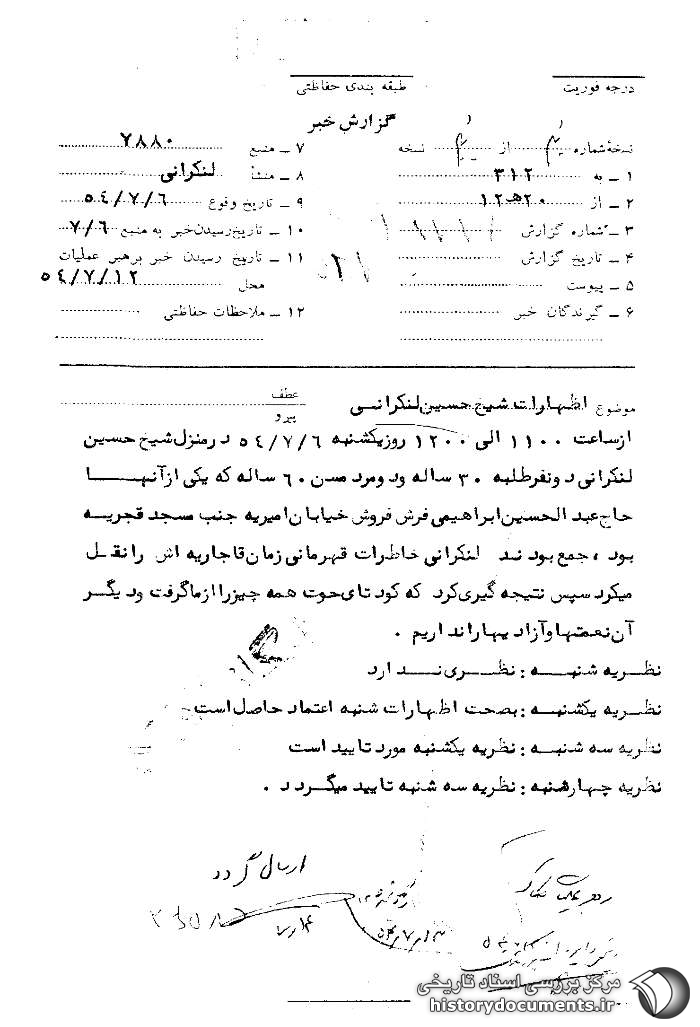 درجه فوریت
طبقه بندی حفاظتی
گزارش خبر
نسخهٔ شماره از نسخه
۱ ـ به ۳۱۲
۲ ـ از ۲۰ه۱۲
۳ ـ شماره گزارش
۴ ـ تاریخ گزارش
۵ ـ پیوست
۶ ـ گیرندگان خبر
۷ ـ منبع ۷۸۸۰
۸ ـ منشأ لنکرانی
۹ ـ تاریخ وقوع ۵۴/۷/۶
۱۰ ـ تاریخ رسیدن خبر به منبع ۷/۶
۱۱ ـ تاریخ رسیدن خبر برهبر عملیات
محل ۵۴/۷/۱۲
۱۲ ـ ملاحظات حفاظتی
موضوع اظهارات شیخ حسین لنکرانی
عطف
پیرو
ازساعت ۱۱۰۰ الی ۱۲۰۰ روزیکشنبه ۵۴/۷/۶ درمنزل شیخ حسین
لنکرانی دونفرطلبه ۳۰ ساله ودومرد مسن ۶۰ ساله که یکی ازآنها
حاج عبدالحسین ابراهیمی فرش فروش خیابان امیریه جنب مسجد قجریه
بود ، جمع بودند لنکرانی خاطرات قهرمانی زمان قاجاریه اش رانقل
میکرد سپس نتیجه گیری کرد که کودتای حوت همه چیزرا ازماگرفت ودیگر
آن نعمتها وآزادیهاراندا‌ریم .
نظریه شنبه : نظری ندارد
نظریه یکشنبه : بصحت اظهارات شنبه اعتماد حاصل است
نظریه سه شنبه : نظریه یکشنبه مورد تایید است
نظریه چهارشنبه : نظریه سه شنبه تایید میگردد .
ارسال گردد
رهبر عملیات
۵۴/۷/۱۳
مرکز بررسی اسناد تاریخی
historydocuments.ir